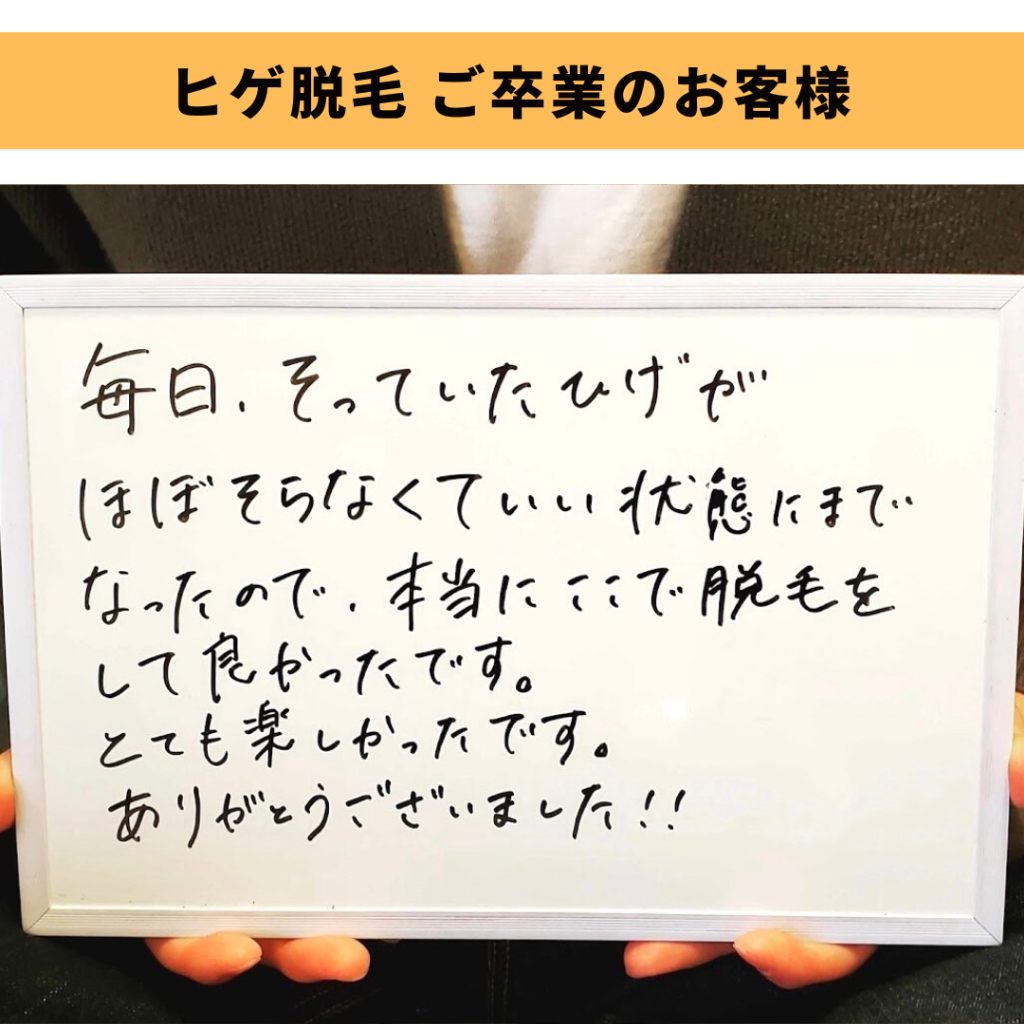 ヒゲ脱毛 ご卒業のお客様
毎日、そっていたひげが
ほぼそらなくていい状態にまで
なったので、本当にここで脱毛を
して良かったです。
とても楽しかったです。
ありがとうございました!!